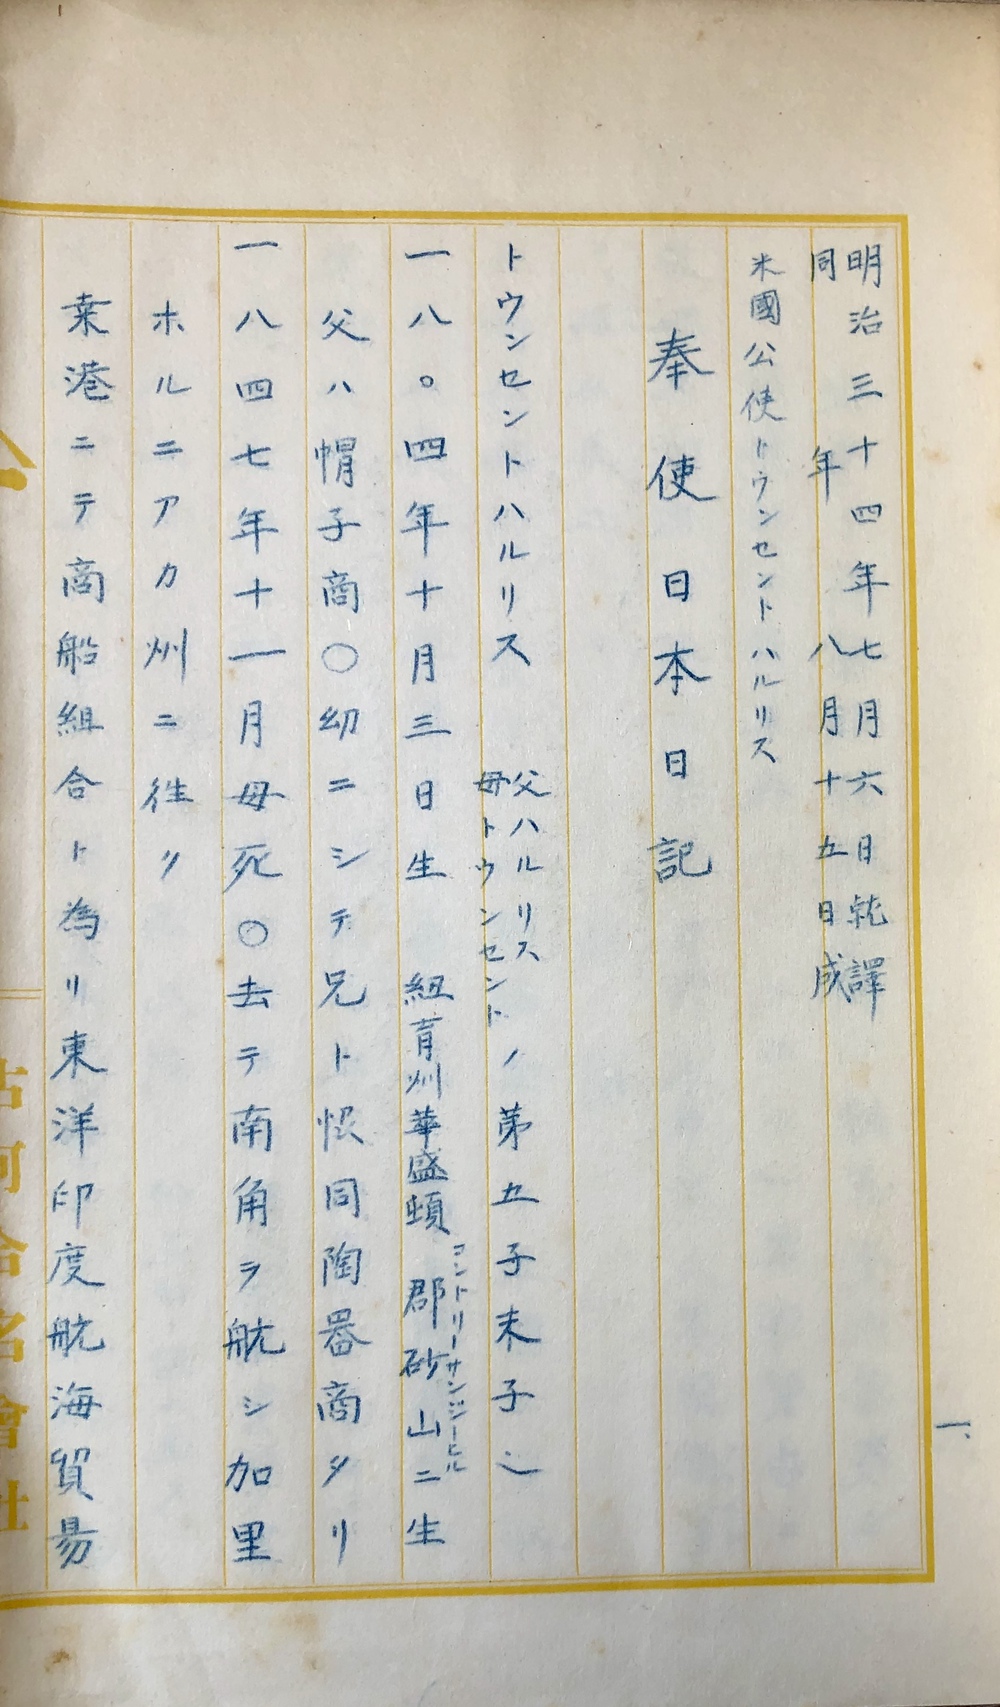 明治三十四年七月六日就譯
同年八月十五日成
米國公使トウンセントハルリス
奉使日本日記
トウンセントハルリス 父ハルリス
母トウンセントノ第五子末子
一八〇四年十月三日生 紐育州華盛頓郡砂山ニ生
コントリーサンジーヒル
父ハ帽子商〇幼ニシテ兄ト同陶器商タリ
一八四七年十一月母死〇去テ南角ヲ航シ加里
ホルニアカ州ニ徃ク
桒港ニテ商船組合ト為リ東洋印度航海貿易
一、
古河合名會社